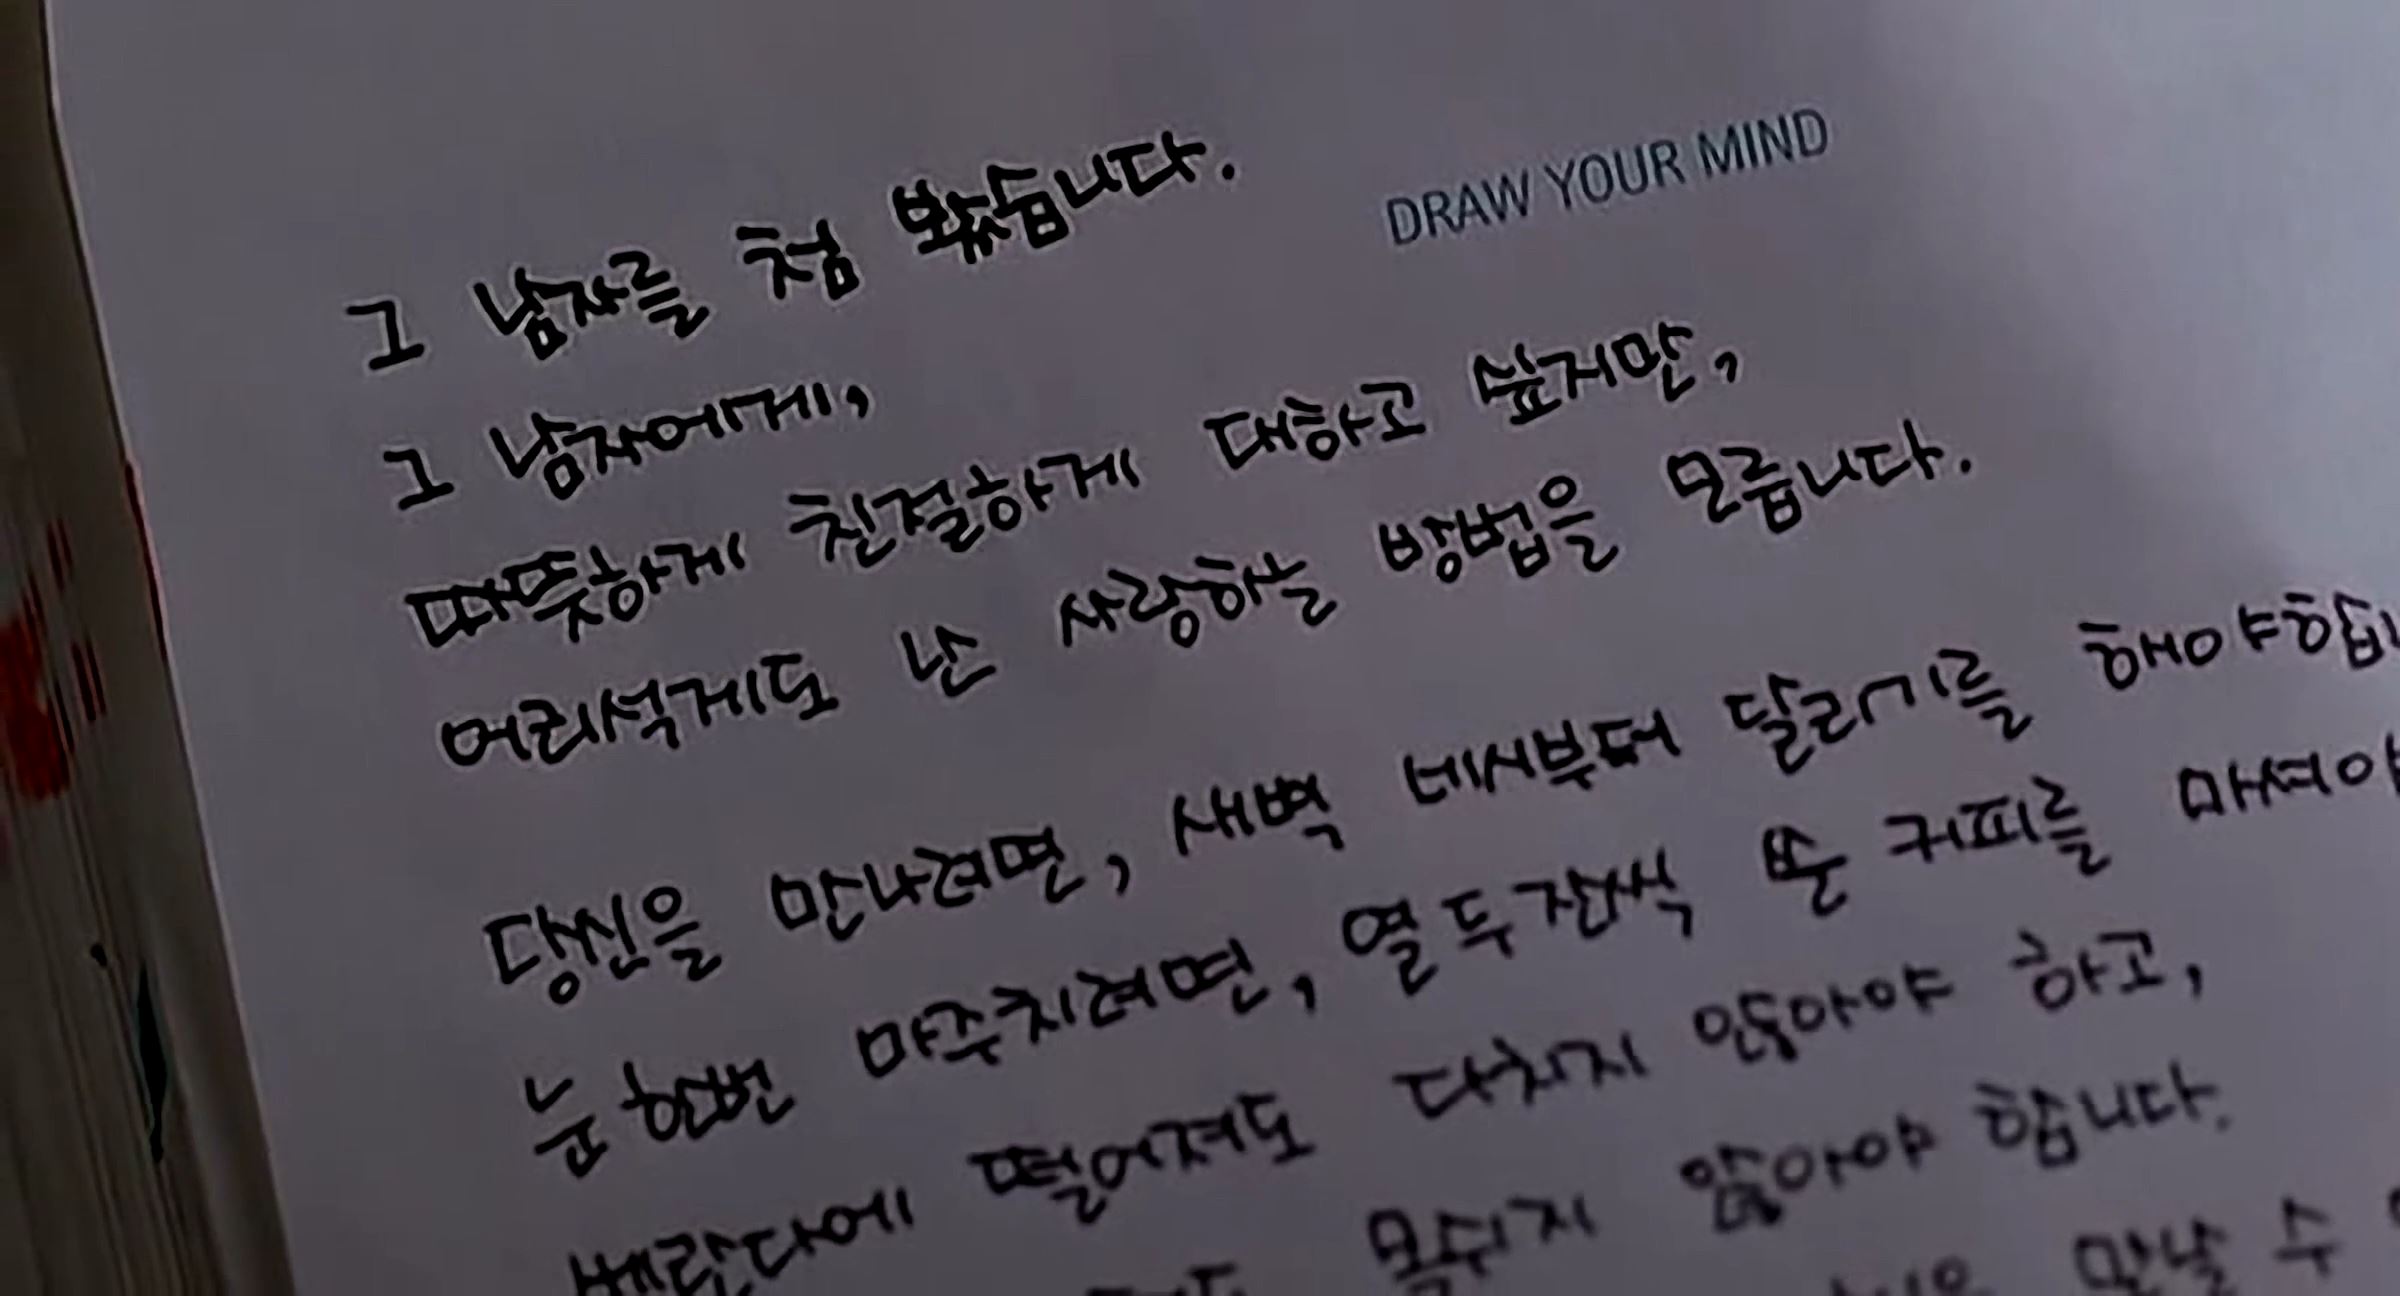 그 남자를 첨 봤습니다.
DRAW YOUR MIND
그 남자에게,
따뜻하게 친절하게 대하고 싶지만,
어리석게도 난 사랑하는 방법을 모릅니다.
당신을 만나려면, 새벽 네시부터 달리기를 해야합니
눈 한번 마주치려면, 열두잔씩 쓴 커피를 마셔야
베란다에 떨어져도 다치지 않아야 하고,
목쉬지 않아야 합니다.
만날 수